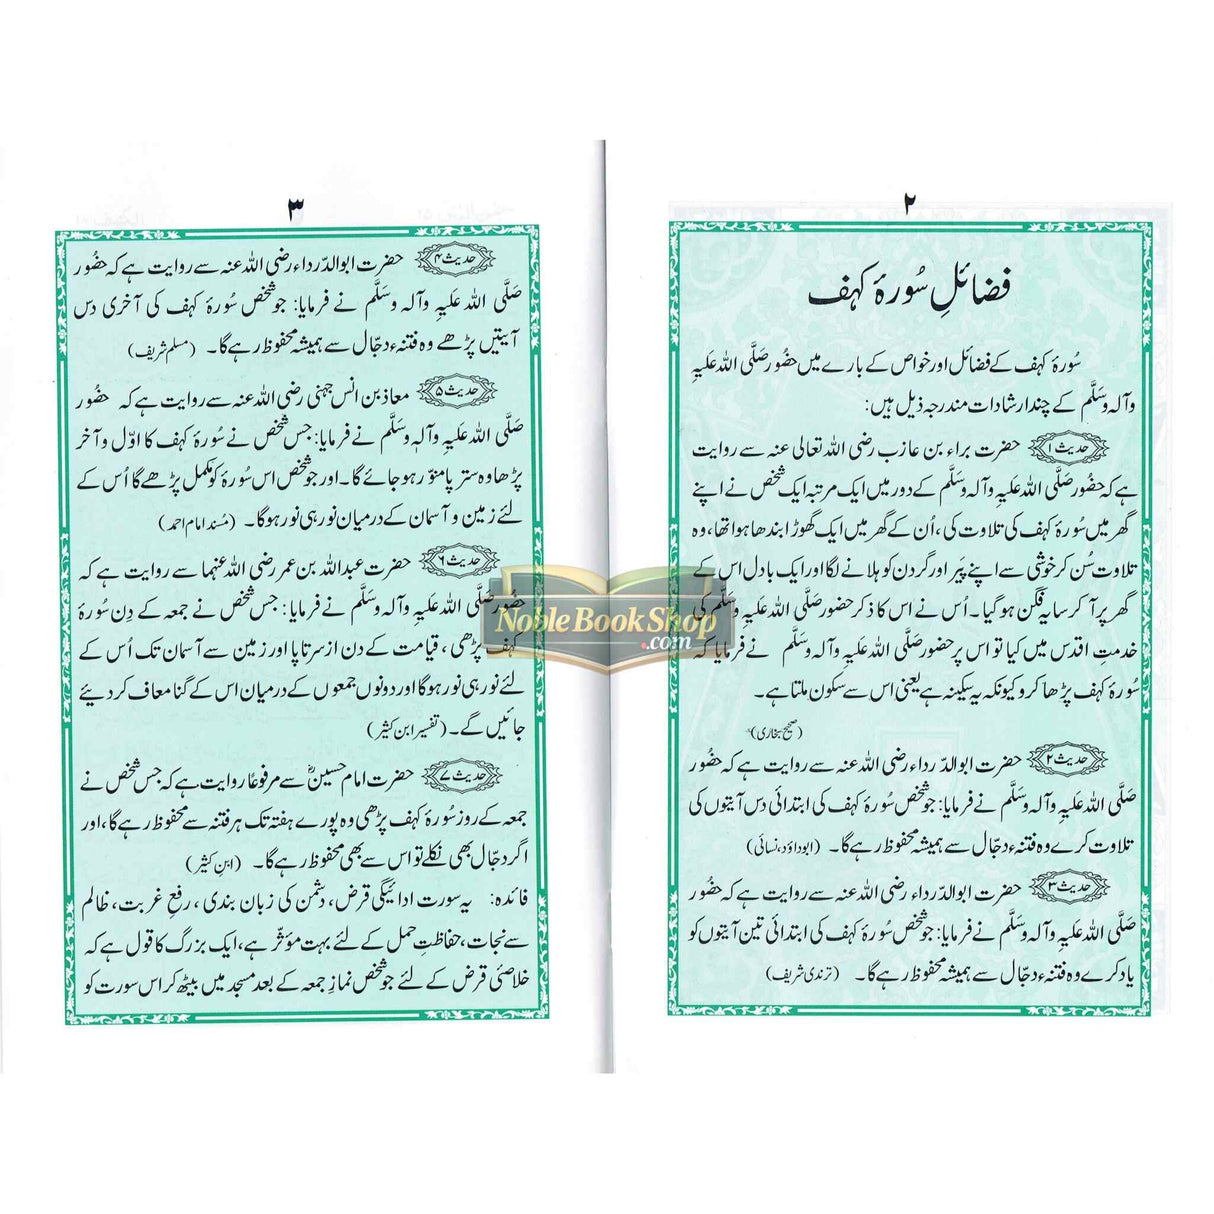 ٢
فضائلِ سُورۂ کہف
سُورۂ کہف کے فضائل اور خواص کے بارے میں حضُور صَلَّی اللہ عَلیہِ
وآلہ وسَلَّم کے چند ارشادات مندرجہ ذیل ہیں:
حدیث ۱ حضرت براء بن عازب رضی اللہ تعالی عنہ سے روایت
ہے کہ حضُور صَلَّی اللہ عَلیہِ وآلہ وسَلَّم کے دور میں ایک مرتبہ ایک شخص نے اپنے
گھر میں سُورۂ کہف کی تلاوت کی، اُن کے گھر میں ایک گھوڑا بندھا ہوا تھا، وہ
تلاوت سُن کر خوشی سے اپنے پَیر اور گردن کو ہلانے لگا اور ایک بادل اس کے
گھر پر آ کر سایہ فگن ہو گیا۔ اُس نے اس کا ذکر حضور صَلَّی اللہ عَلیہِ وسَلَّم کی
خدمتِ اقدس میں کیا تو اس پر حضور صَلَّی اللہ عَلیہِ وآلہ وسَلَّم نے فرمایا کہ
سُورۂ کہف پڑھا کرو کیونکہ یہ سکینہ ہے یعنی اس سے سکون ملتا ہے۔
(صحیح بخاری)
حدیث ۲ حضرت ابوالدّرداء رضی اللہ عنہ سے روایت ہے کہ حضُور
صَلَّی اللہ عَلیہِ وآلہ وسَلَّم نے فرمایا: جو شخص سُورۂ کہف کی ابتدائی دس آیتوں کی
تلاوت کرے وہ فتنہء دجّال سے ہمیشہ محفوظ رہے گا۔ (ابوداؤد، نسائی)
حدیث ۳ حضرت ابوالدّرداء رضی اللہ عنہ سے روایت ہے کہ حضُور
صَلَّی اللہ عَلیہِ وآلہ وسَلَّم نے فرمایا: جو شخص سُورۂ کہف کی ابتدائی تین آیتوں کو
یاد کرے وہ فتنہء دجّال سے ہمیشہ محفوظ رہے گا۔ (ترندی شریف)
٣
حدیث ۴ حضرت ابوالدّرداء رضی اللہ عنہ سے روایت ہے کہ حضُور
صَلَّی اللہ عَلیہِ وآلہ وسَلَّم نے فرمایا: جو شخص سُورۂ کہف کی آخری دس
آیتیں پڑھے وہ فتنہء دجّال سے ہمیشہ محفوظ رہے گا۔ (مسلم شریف)
حدیث ۵ معاذ بن انس جہنی رضی اللہ عنہ سے روایت ہے کہ حضُور
صَلَّی اللہ عَلیہِ وآلہٖ وسَلَّم نے فرمایا: جس شخص نے سُورۂ کہف کا اوّل و آخر
پڑھا وہ ستر پا منوّر ہو جائے گا۔ اور جو شخص اس سُورۂ کو مکمل پڑھے گا اُس کے
لئے زمین و آسمان کے درمیان نور ہی نور ہو گا۔ (مُسند امام احمد)
حدیث ۶ حضرت عبداللہ بن عمر رضی اللہ عنہما سے روایت ہے کہ
حضُور صَلَّی اللہ عَلیہِ وآلہ وسَلَّم نے فرمایا: جس شخص نے جمعہ کے دِن سُورۂ
کہف پڑھی، قیامت کے دن از سرتا پا اور زمین سے آسمان تک اُس کے
لئے نور ہی نور ہو گا اور دونوں جمعوں کے درمیان اس کے گناہ معاف کر دیئے
جائیں گے۔ (تفسیر ابن کثیر)
حدیث ۷ حضرت امام حسینؓ سے مرفوعًا روایت ہے کہ جس شخص نے
جمعہ کے روز سُورۂ کہف پڑھی وہ پورے ہفتہ تک ہر فتنہ سے محفوظ رہے گا، اور
اگر دجّال بھی نکلے تو اس سے بھی محفوظ رہے گا۔ (ابنِ کثیر)
فائدہ: یہ سورت ادائیگی قرض، دشمن کی زبان بندی، رفعِ غربت، ظالم
سے نجات، حفاظتِ حمل کے لئے بہت مؤثر ہے، ایک بزرگ کا قول ہے کہ
خلاصئی قرض کے لئے جو شخص نمازِ جمعہ کے بعد مسجد میں بیٹھ کر اس سورت کو
Noble Book Shop
.com